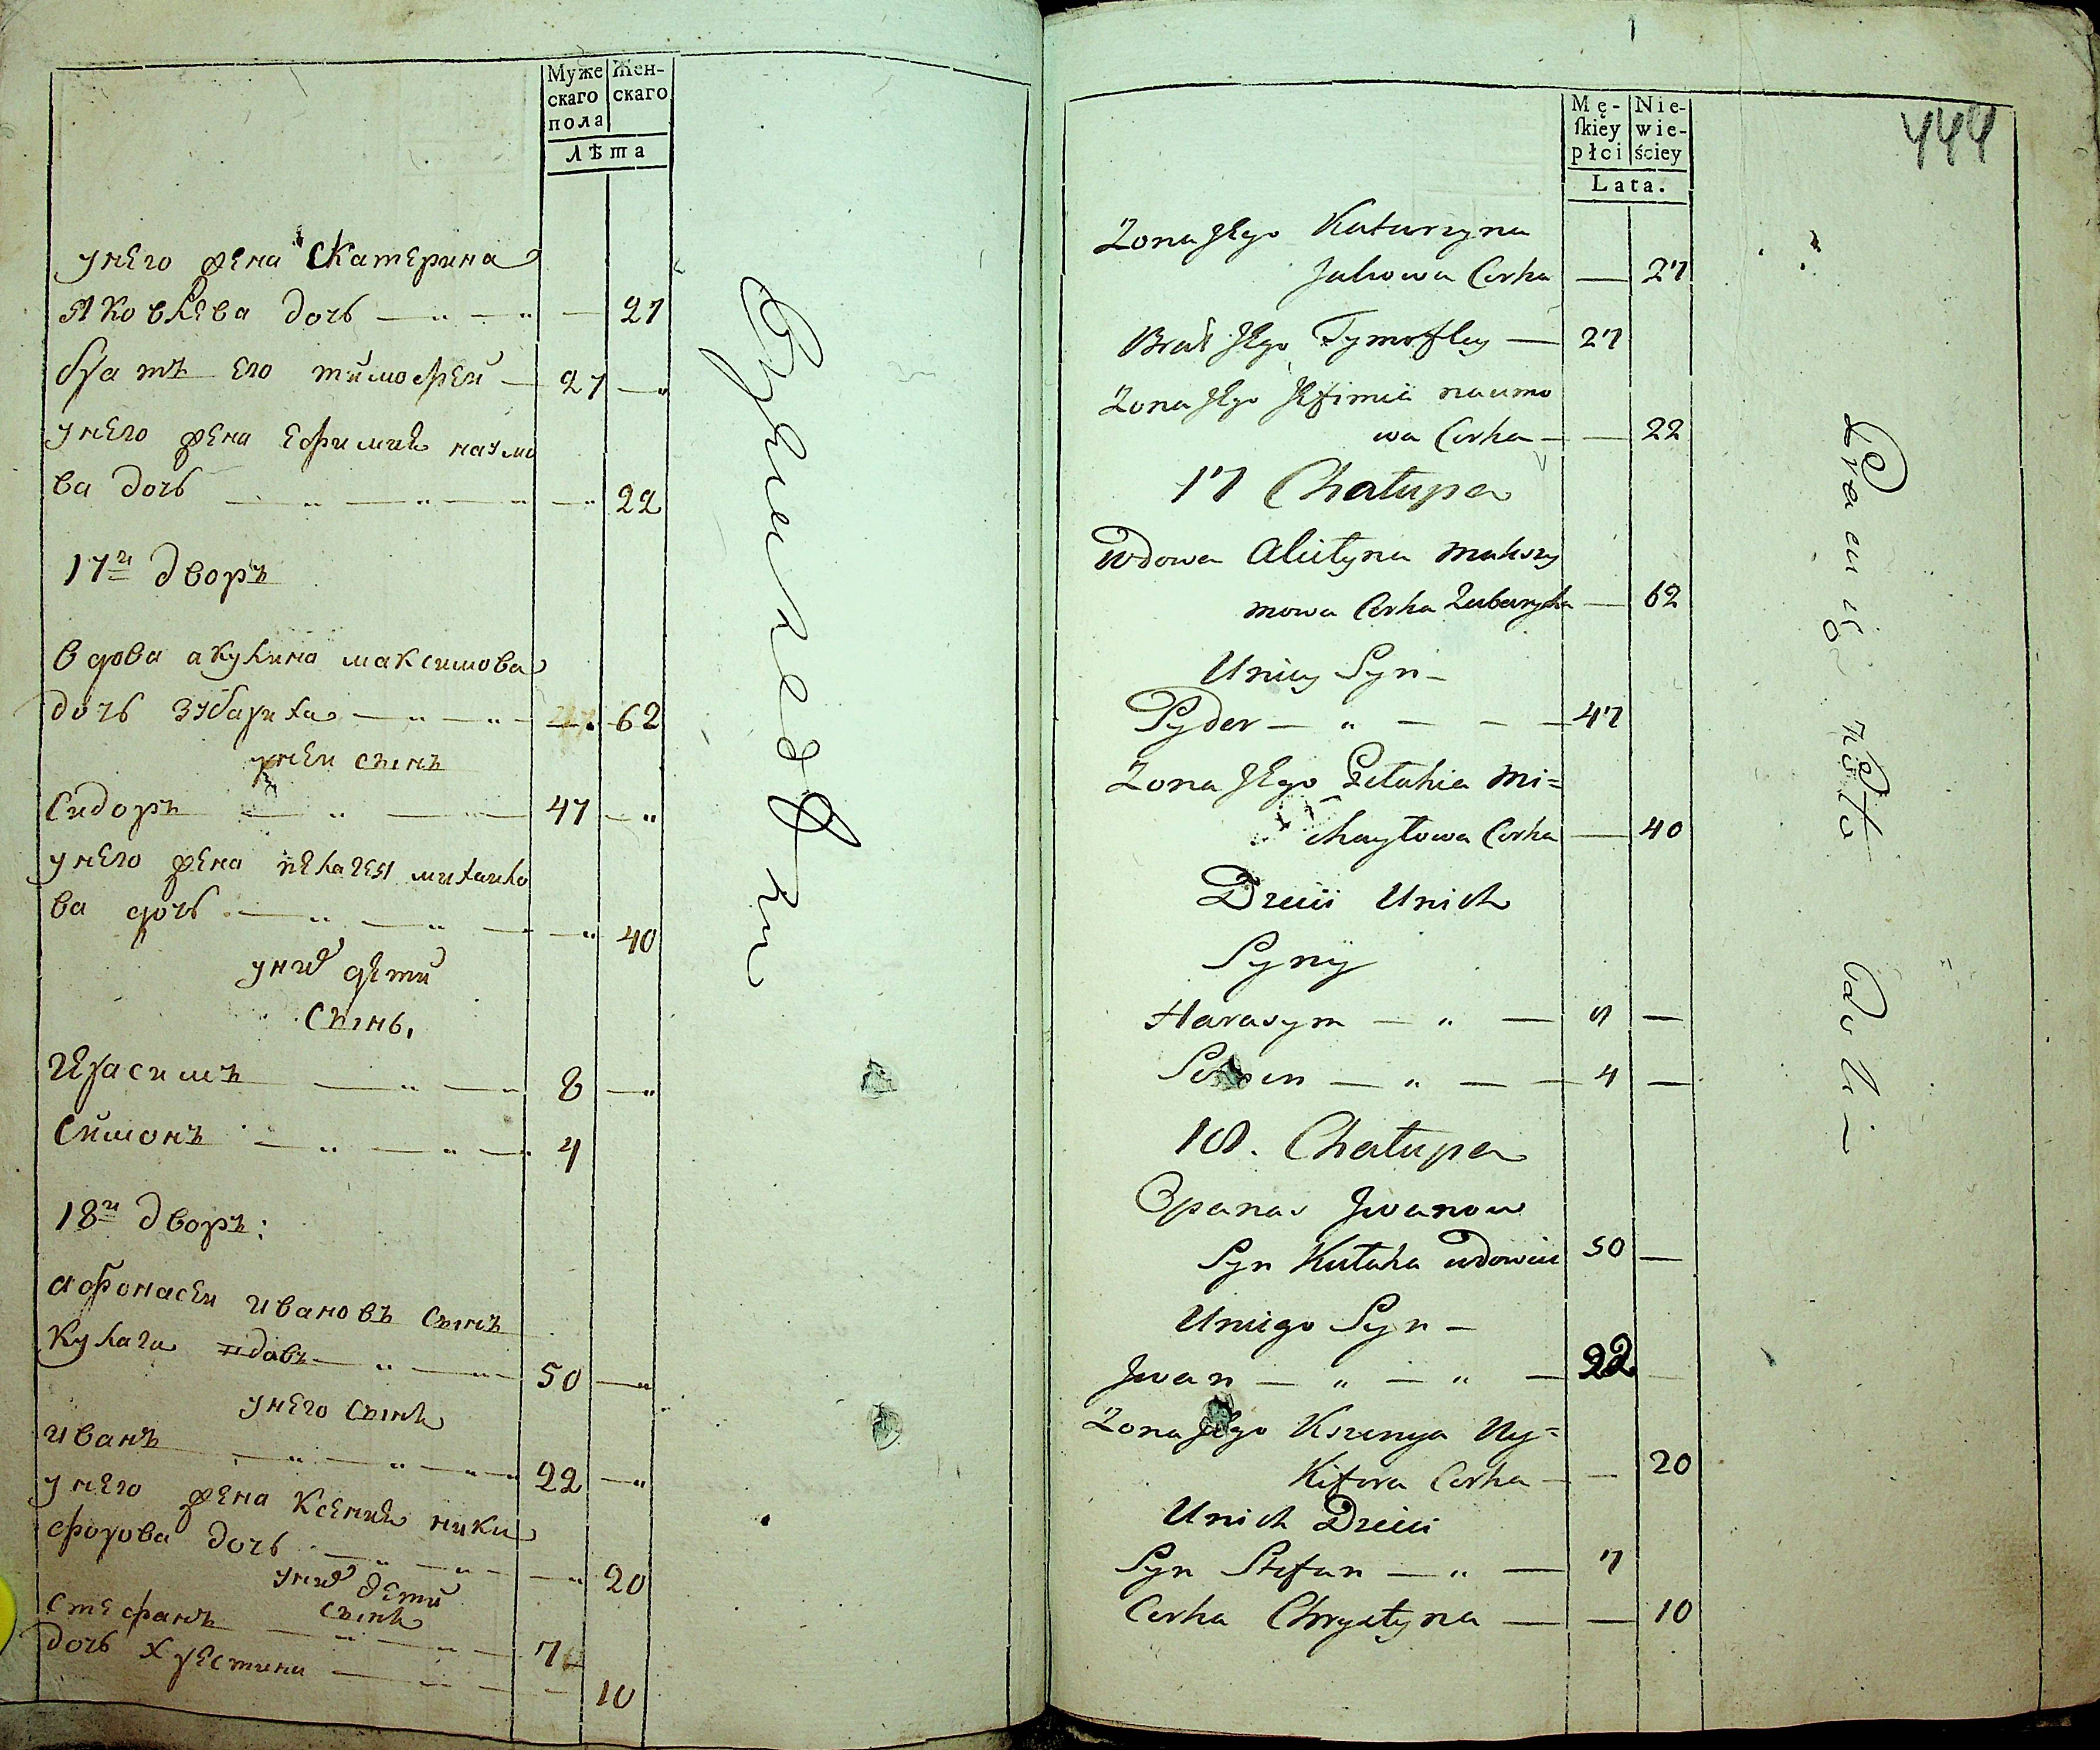 Муже
скаго
пола
Жен-
скаго
Лѣта
унего жена Екатерина
Яковлева дочь 27
братъ его тимофей 27
унего жена Ефимия наумо
ва дочь 22
17й дворъ
вдова акулина максимова
дочь зубариха 62
унеи сынъ
Сидоръ 47
унего жена пелагея михаило
ва дочь 40
уних дети
Сынь,
Герасимъ 8
Симонъ 4
18й дворъ:
Афонасеи Ивановъ Сынъ
Кулага вдовъ 50
унего Сынъ
Иванъ 22
унего жена Ксения ники
форова дочь 20
уних дети
Сынъ
Стефанъ 7
дочь Христина 10
444
Mę-
skiey
płci
Nie-
wie-
ściey
Lata.
Zona Jego Katarzyna
Jakowa Corka — 27
Brat Jego Tymofiey — 27
Zona Jego Jefimia naumo
wa Corka — — 22
17 Chałupa
Wdowa Akulyna Maksy
mowa Corka Zubarycha — 62
Uniey Syn —
Sydor — " — — — 47
Zona Jego Pelahia Mi=
chayłowa Corka — 40
Dzieci Unich
Syny
Harasym — " — 8 —
— " — — 4 —
18. Chałupa
Opanas Jwanow
Syn Kulaha wdowiec 50 —
Uniego Syn —
Jwan — " — " — 22 —
Zona Jego Ksenya Ny=
kifora Corka — — 20
Unich Dzieci
Syn Stefan — " — 7
Corka Chrystyna — — 10